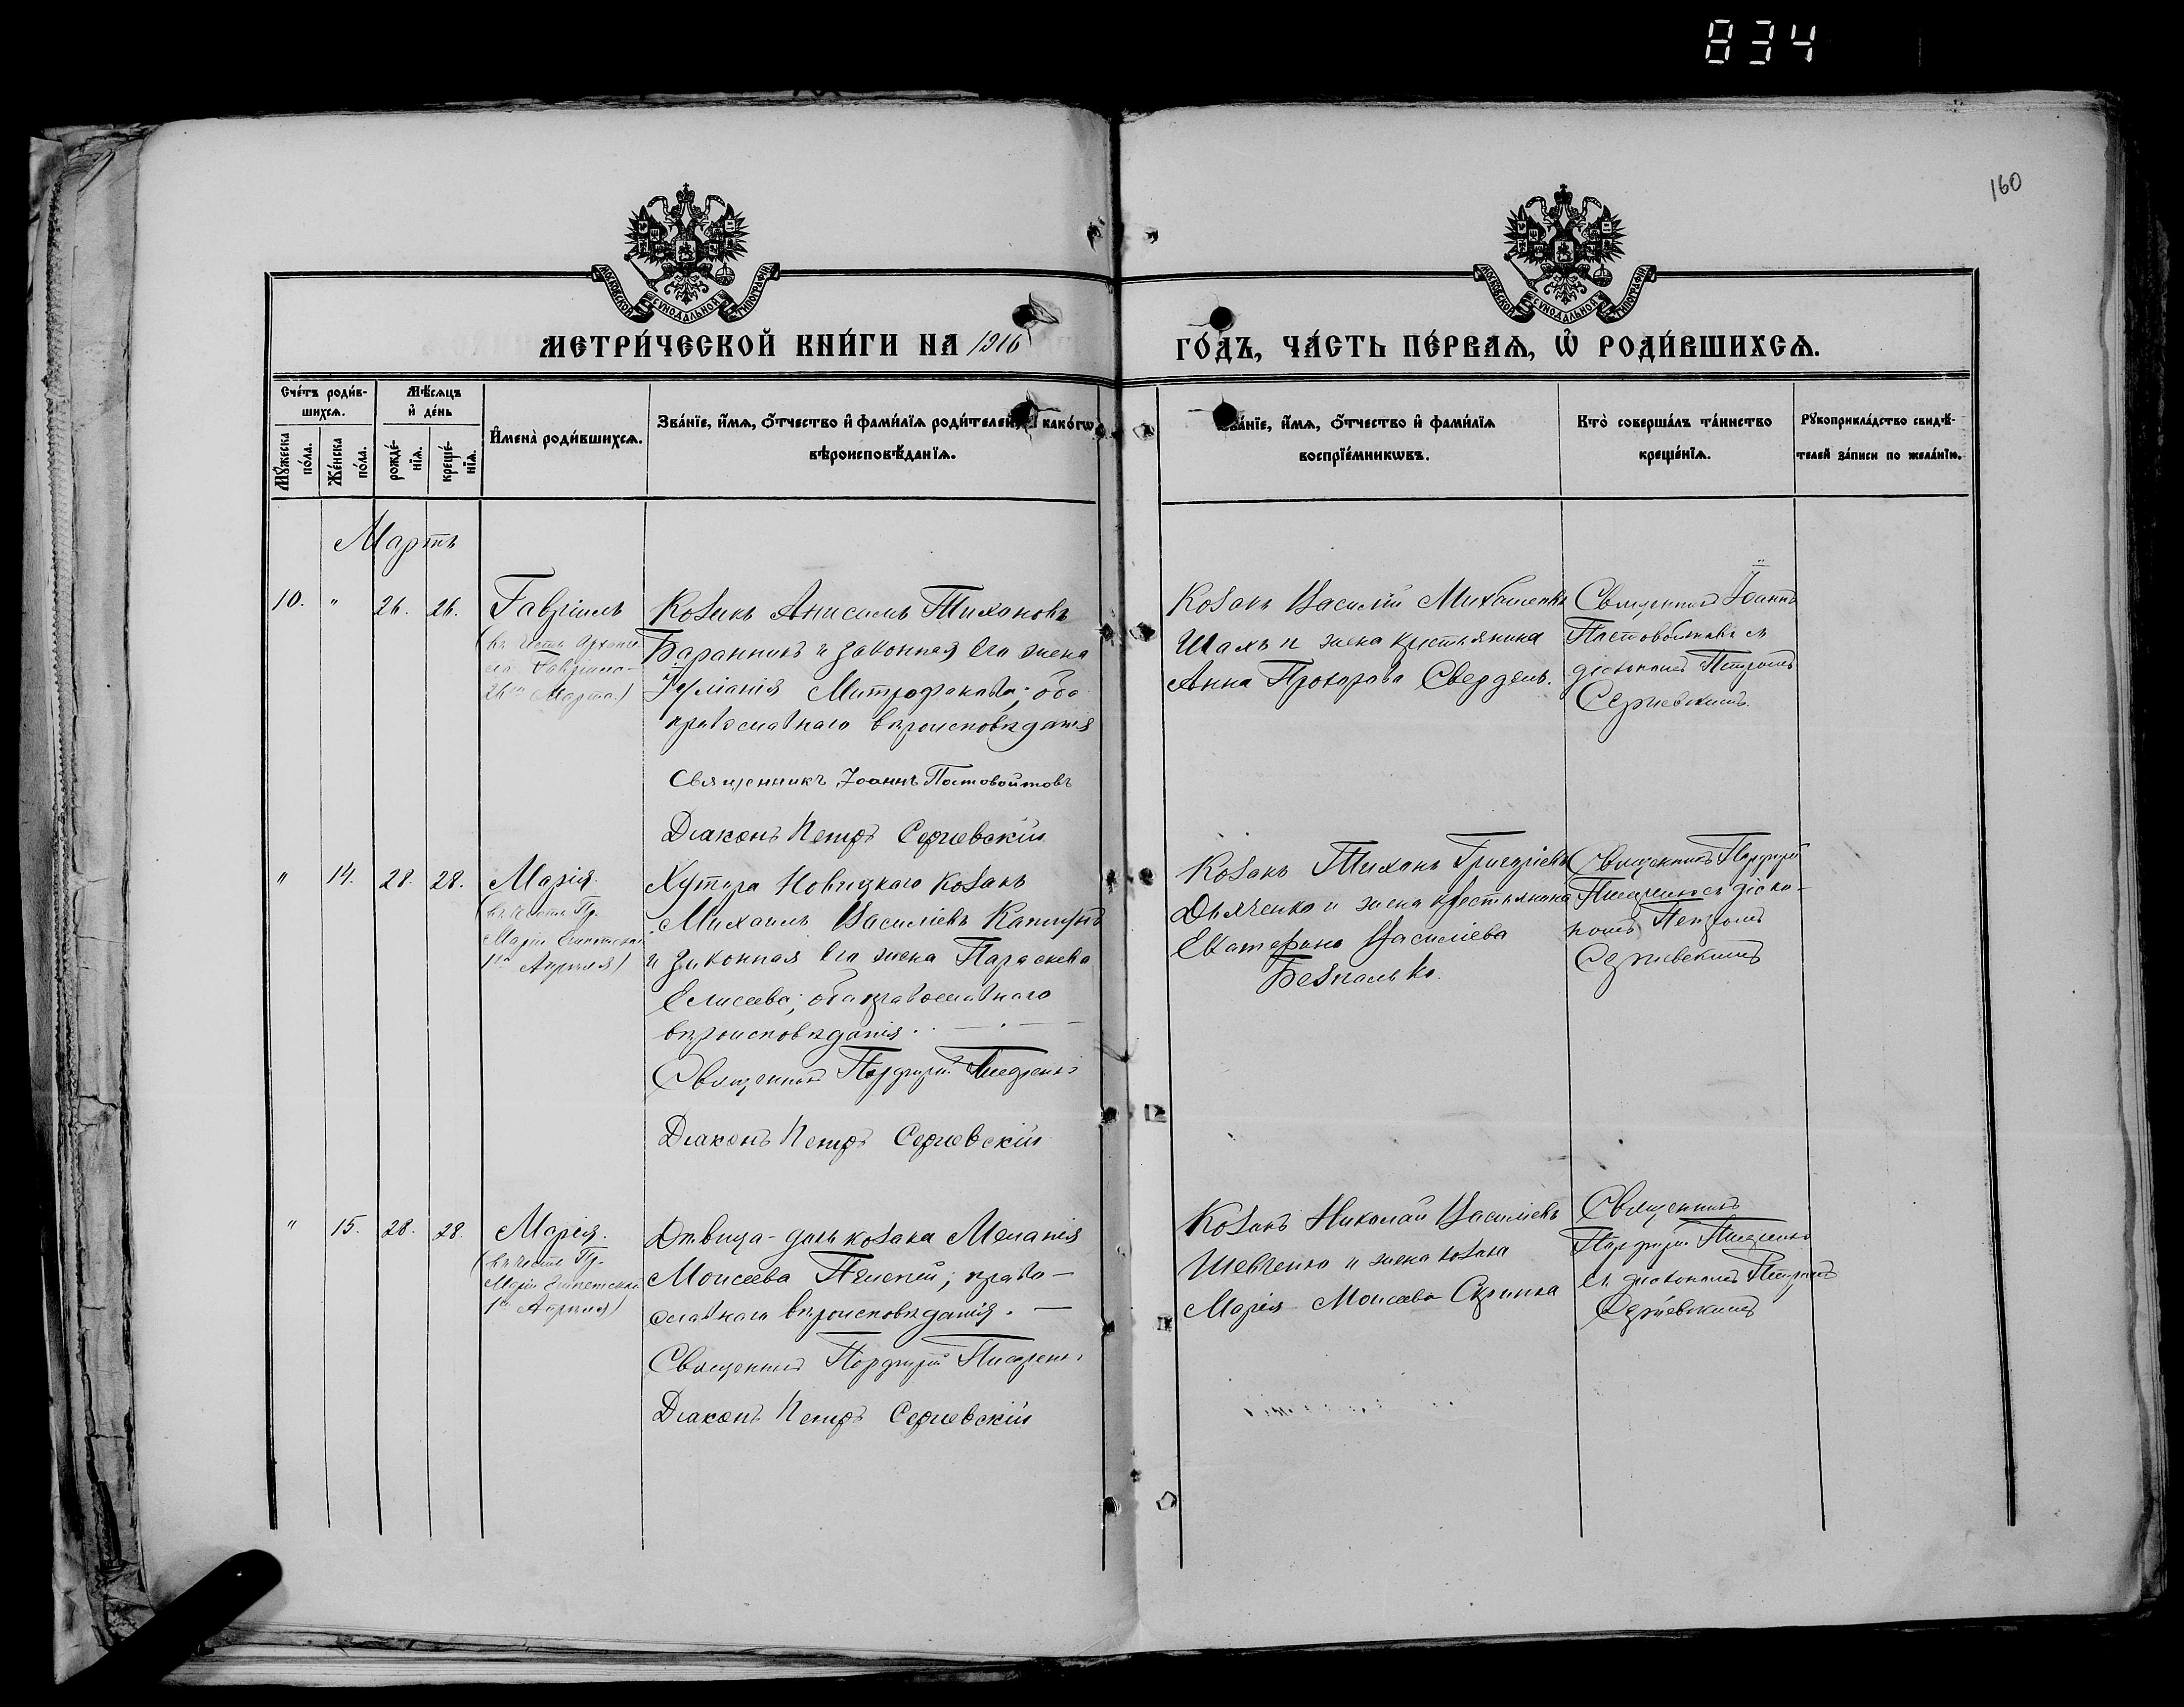 834
160
МОСКОВСКОЙ СѴНОДАЛЬНОЙ ТИПОГРАФІИ
МОСКОВСКОЙ СѴНОДАЛЬНОЙ ТИПОГРАФІИ
МЕТРИ́ЧЕСКОЙ КНИ́ГИ НА 1916
ГО́ДЪ, ЧА́СТЬ ПЕ́РВАѦ, Ѡ҆ РОДИ́ВШИХСѦ.
Сче́тъ роди́в-
шихсѧ.
Мѣ́сѧцъ
и҆ де́нь
Мꙋ́жеска по́ла.
Же́нска по́ла.
рожде́-нїѧ.
креще́-нїѧ.
И҆мена̀ роди́вшихсѧ.
Зва́нїе, и҆́мѧ, ѻ҆́тчество и҆ фами́лїѧ роди́телей, и҆ како́гѡ
вѣроисповѣ́данїѧ.
Зва́нїе, и҆́мѧ, ѻ҆́тчество и҆ фами́лїѧ
воспрїе́мникѡвъ.
Кто̀ соверша́лъ та́инство
креще́нїѧ.
Рꙋкоприкла́дство свидѣ́-
телей за́писи по жела́нїю.
Мартъ
10. " 26. 26. Гавріилъ
(въ честь Архан
Гавріила
26го Марта)
Козакъ Анисимъ Тихоновъ
Баранникъ и законная его жена
Іуліанія Митрофанова; оба
православнаго вѣроисповѣданія
Священникъ Іоаннъ Постовойтовъ
Діаконъ Петръ Сергіевскій
Козакъ Василій Михайловъ
Шахъ и жена крестьянина
Анна Прохорова
Священникъ Іоаннъ
Постовойтовъ съ
діакономъ Петромъ
Сергіевскимъ.
" 14. 28. 28. Марія
(въ честь Пр.
Маріи Египетской
1го Апрѣля)
Хутора Новицкаго козакъ
Михаилъ Василіевъ
и законная его жена Параскева
Елисеева; оба православнаго
вѣроисповѣданія.
Священникъ Порфирій Писаренко
Діаконъ Петръ Сергіевскій
Козакъ Тихонъ Григоріевъ
Дьяченко и жена крестьянина
Екатерина Василіева
Безпалько.
Священникъ Порфирій
Писаренко съ діако-
номъ Петромъ
Сергіевскимъ
" 15. 28. 28. Марія.
(въ честь Пр.
Маріи Египетской
1го Апрѣля)
Дѣвица-дочь козака Меланія
Моисеева; право-
славнаго вѣроисповѣданія.
Священникъ Порфирій Писаренко
Діаконъ Петръ Сергіевскій
Козакъ Николай Василіевъ
Шевченко и жена козака
Марія Моисеева Скрипка
Священникъ
Порфирій Писаренко
съ діакономъ Петромъ
Сергіевскимъ